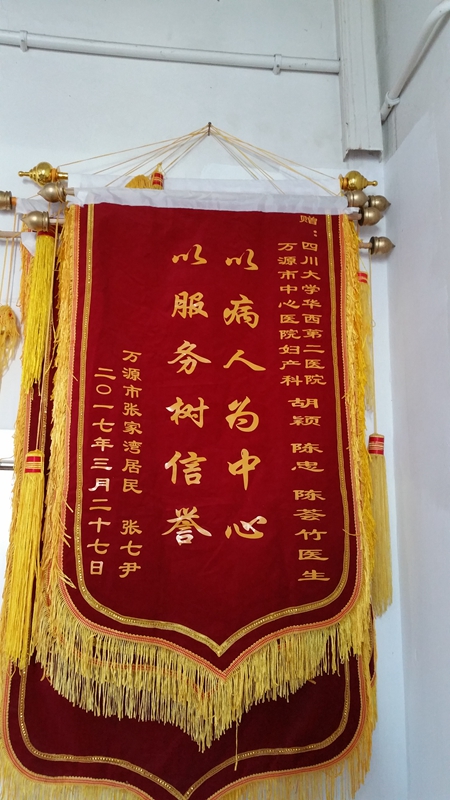 赠：四川大学华西第二医院
万源市中心医院妇产科 胡颖 陈忠 陈荟竹医生
以病人为中心
以服务树信誉
万源市张家湾居民 张七尹
二〇一七年三月二十七日